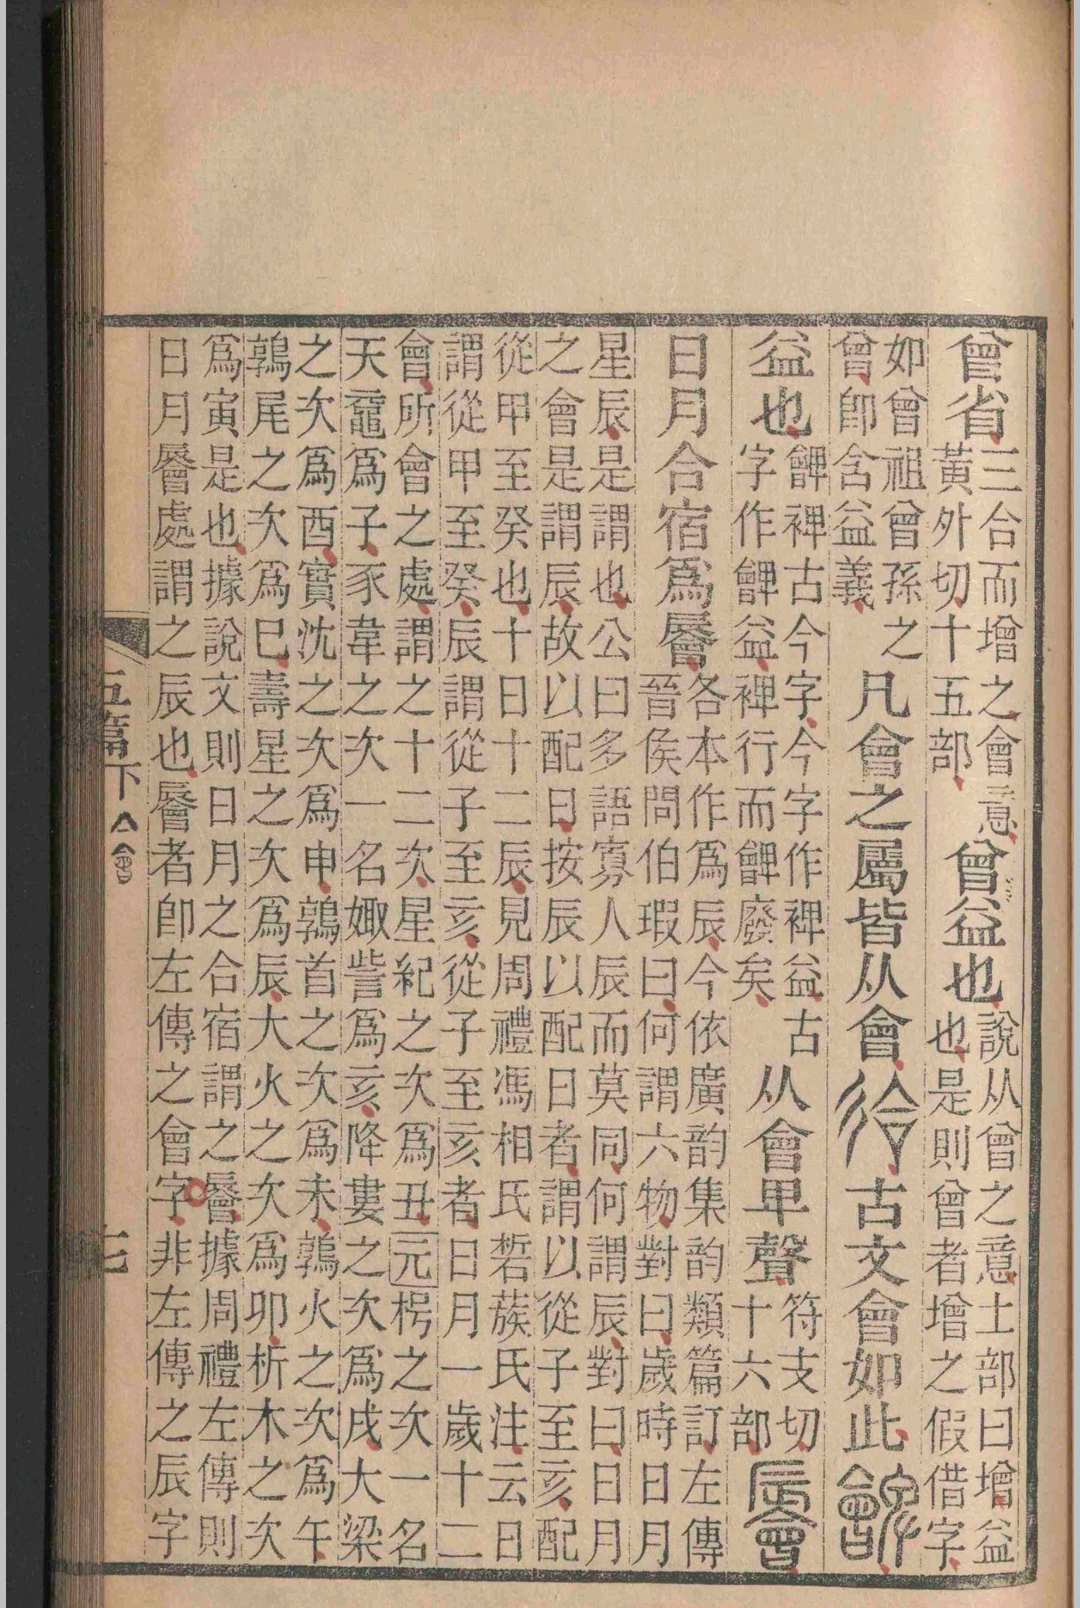 曾省
三合而增之會意
黃外切十五部
曾益也
說从曾之意土部曰增益
也是則曾者增之假借字
如曾祖曾孫之
曾卽含益義
凡會之屬皆从會㣛古文會如此朇
益也
朇裨古今字今字作裨益古
字作朇益裨行而朇廢矣
从會卑聲
符支切
十六部
䢈
日月合宿爲䢈
各本作爲辰今依廣韵集韵類篇訂左傳
晉侯問伯瑕曰何謂六物對曰歲時日月
星辰是謂也公曰多語寡人辰而莫同何謂辰對曰日月
之會是謂辰故以配日按辰以配日者謂以從子至亥配
從甲至癸也十日十二辰見周禮馮相氏硩蔟氏注云日
謂從甲至癸辰謂從子至亥從子至亥者日月一歲十二
會所會之處謂之十二次星紀之次爲丑元枵之次一名
天黿爲子豕韋之次一名娵訾爲亥降婁之次爲戌大梁
之次爲酉實沈之次爲申鶉首之次爲未鶉火之次爲午
鶉尾之次爲巳壽星之次爲辰大火之次爲卯析木之次
爲寅是也據說文則日月之合宿謂之䢈據周禮左傳則
日月䢈處謂之辰也䢈者卽左傳之會字非左傳之辰字
五篇下 亼會 七